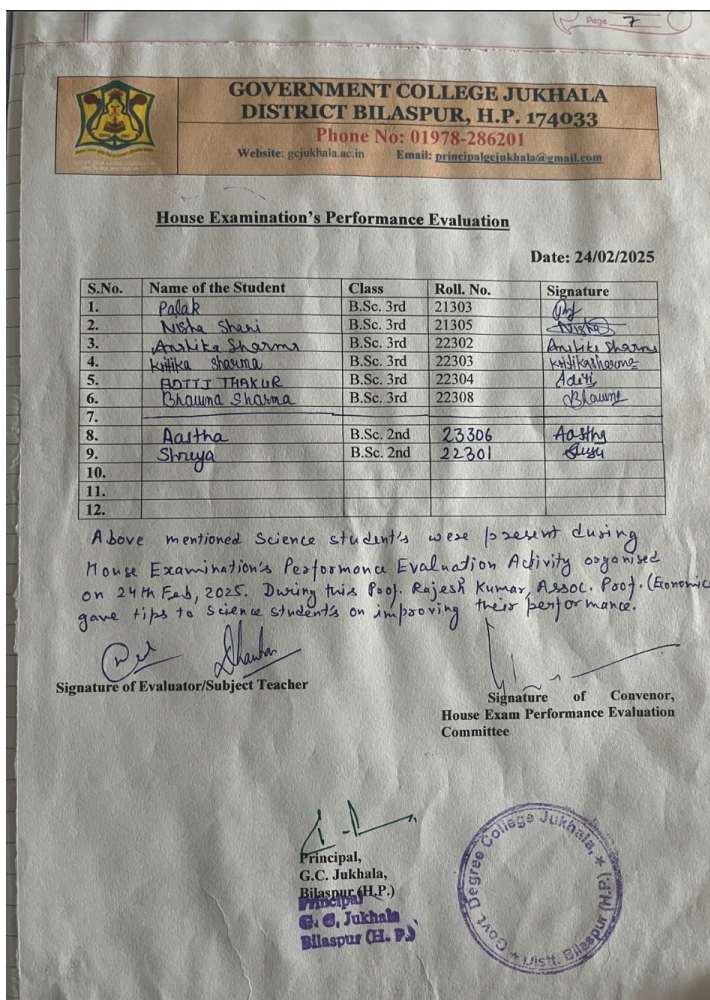 Page 7
GOVERNMENT COLLEGE JUKHALA
DISTRICT BILASPUR, H.P. 174033
Phone No: 01978-286201
Website: gcjukhala.ac.in Email: principalgcjukhala@gmail.com
House Examination's Performance Evaluation
Date: 24/02/2025
S.No. Name of the Student Class Roll. No. Signature
1. Palak B.Sc. 3rd 21303
2. Nisha Shani B.Sc. 3rd 21305 Nisha
3. Anshika Sharma B.Sc. 3rd 22302 Anshika Sharma
4. Kritika Sharma B.Sc. 3rd 22303 Kritikasharma
5. ADITI THAKUR B.Sc. 3rd 22304 Aditi
6. Bhawna Sharma B.Sc. 3rd 22308 Bhawna
7.
8. Aastha B.Sc. 2nd 23306 Aastha
9. Shreya B.Sc. 2nd 22301
10.
11.
12.
Above mentioned Science student's were present during
House Examination's Performance Evaluation Activity organised
on 24th Feb, 2025. During this Prof. Rajesh Kumar, Assoc. Prof. (Economic
gave tips to Science student's on improving their performance.
Signature of Evaluator/Subject Teacher
Signature of Convenor,
House Exam Performance Evaluation
Committee
Principal,
G.C. Jukhala,
Bilaspur (H.P.)
Principal
G. C. Jukhala
Bilaspur (H. P.)
Govt. Degree College Jukhala, * Distt. Bilaspur (H.P.) *